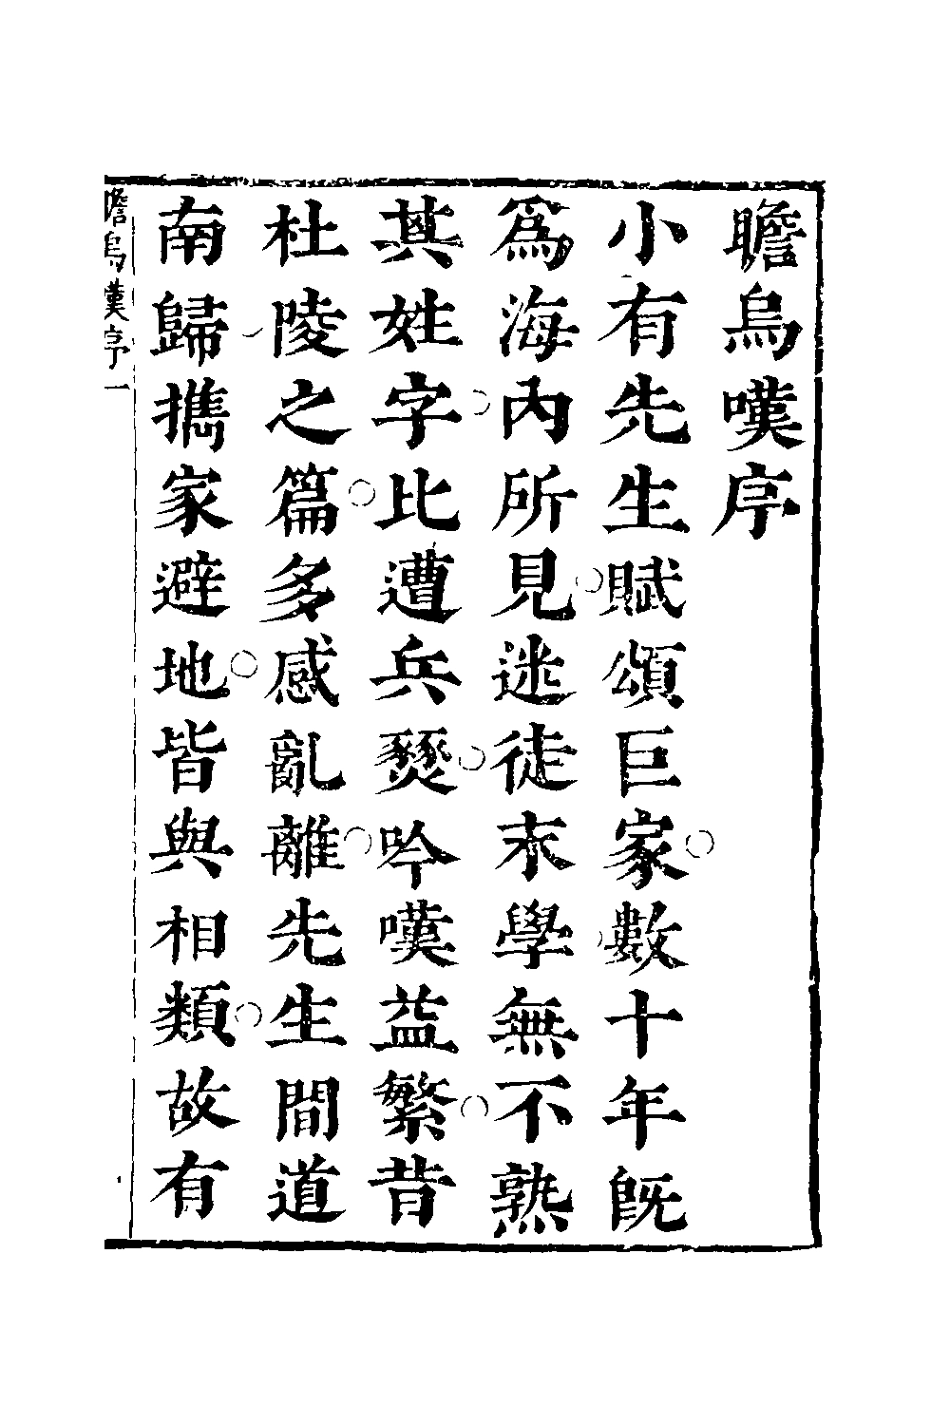 瞻烏嘆序
小有先生賦頌巨家數十年既
爲海內所見迷徒末學無不熟
其姓字比遭兵燹吟嘆益繁昔
杜陵之篇多感亂離先生間道
南歸擕家避地皆與相類故有
瞻烏嘆序一